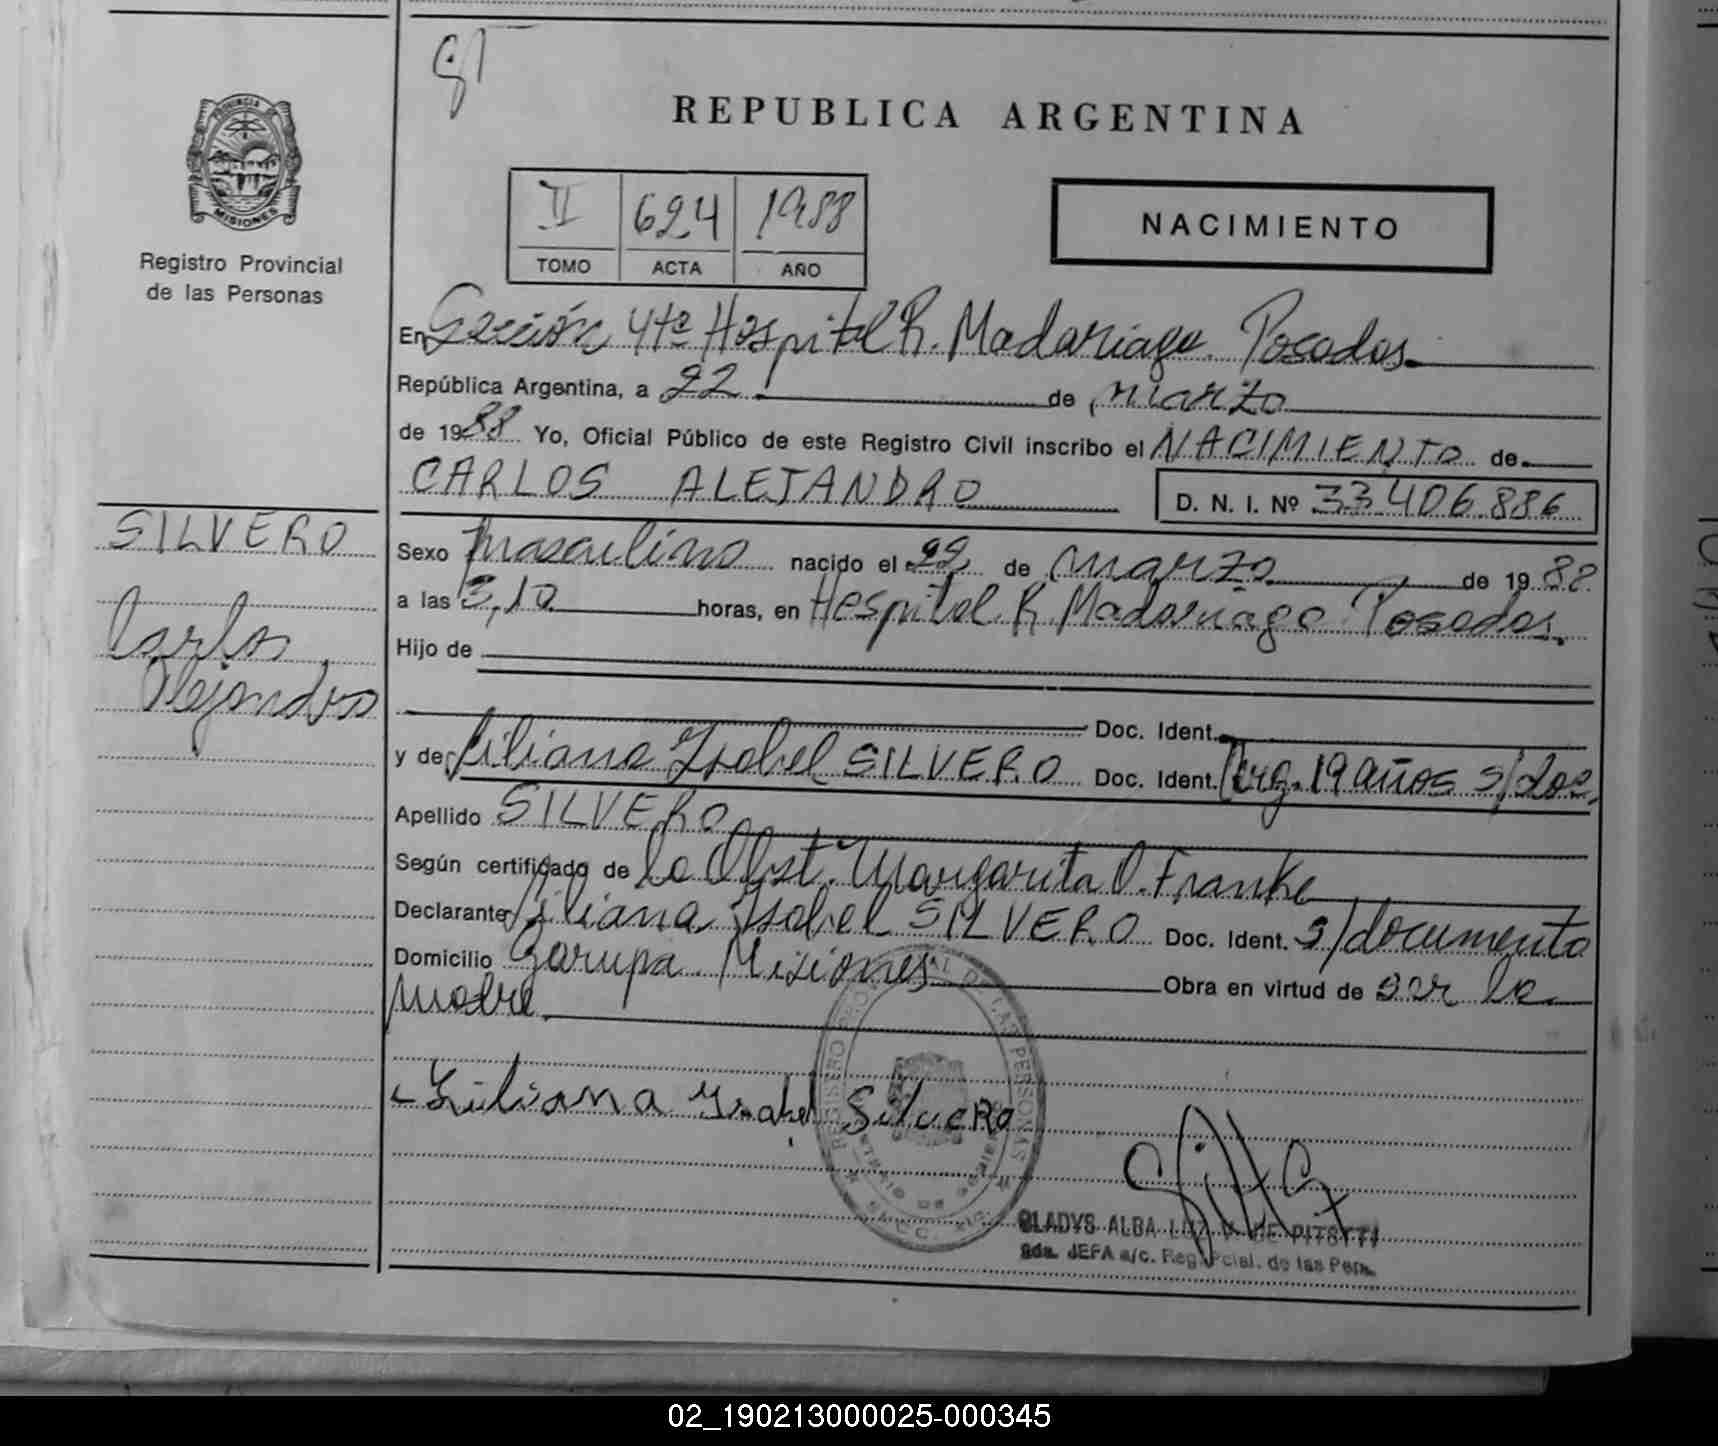 REPUBLICA ARGENTINA
PROVINCIA
MISIONES
Registro Provincial
de las Personas
II 624 1988
TOMO ACTA AÑO
NACIMIENTO
En Sección 4ta Hospital R. Madariaga Posadas
República Argentina, a 22 de marzo
de 1988 Yo, Oficial Público de este Registro Civil inscribo el NACIMIENTO de
CARLOS ALEJANDRO D. N. I. Nº 33.406.886
SILVERO
Carlos
Alejandro
Sexo masculino nacido el 22 de marzo de 1988
a las 3,10 horas, en Hospital R. Madariaga Posadas.
Hijo de
Doc. Ident.
y de Liliana Isabel SILVERO Doc. Ident. Arg. 19 años s/doc.
Apellido SILVERO
Según certificado de la Obst. Margarita O. Franke
Declarante Liliana Isabel SILVERO Doc. Ident. s/documento
Domicilio Garupa Misiones Obra en virtud de ser la
madre
Liliana Isabel Silvero
GLADYS ALBA LUZ V. DE PITSTTI
Sda. JEFA a/c. Reg. Pcial. de las Pers.
02_190213000025-000345